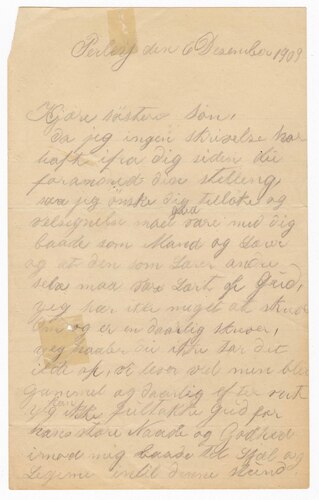 Perley den 6 Desember 1909
Kjære søsters Søn,
Da jeg ingen skrivelse har
haft ifra dig siden du
forandred din stelling,
saa jeg ønske dig tilløke og
velsignelse maa Gud være med dig
baade som Mand og Lærer
og at den som Lærer andre
selv maa være Lært af Gud,
jeg har ikke noget at skrive
om og er en daarlig skriver,
jeg haaber du ikke tar det
ilde op, vi lever vel men blir
gammel og daarlig efter vert
jeg kan ikke fultakke Gud for
hans store Naade og Godhed
imod mig baade til Sjæl og
Legeme intil denne stund